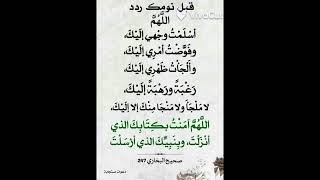 قبل نومك ردد
اللَّهُمَّ
أسْلَمْتُ وَجْهِي إلَيْكَ،
وَفَوَّضْتُ أَمْرِي إلَيْكَ،
وَأَلْجَأْتُ ظَهْرِي إلَيْكَ،
رَغْبَةً ورَهْبَةً إلَيْكَ،
لا مَلْجَأَ ولا مَنْجَا مِنْكَ إلا إلَيْكَ،
اللَّهُمَّ آمَنْتُ بِكِتَابِكَ الذي
أنْزَلْتَ، وبِنَبِيِّكَ الذي أرْسَلْتَ
صحيح البخاري 247
دعوات مستجابة
VivaCut